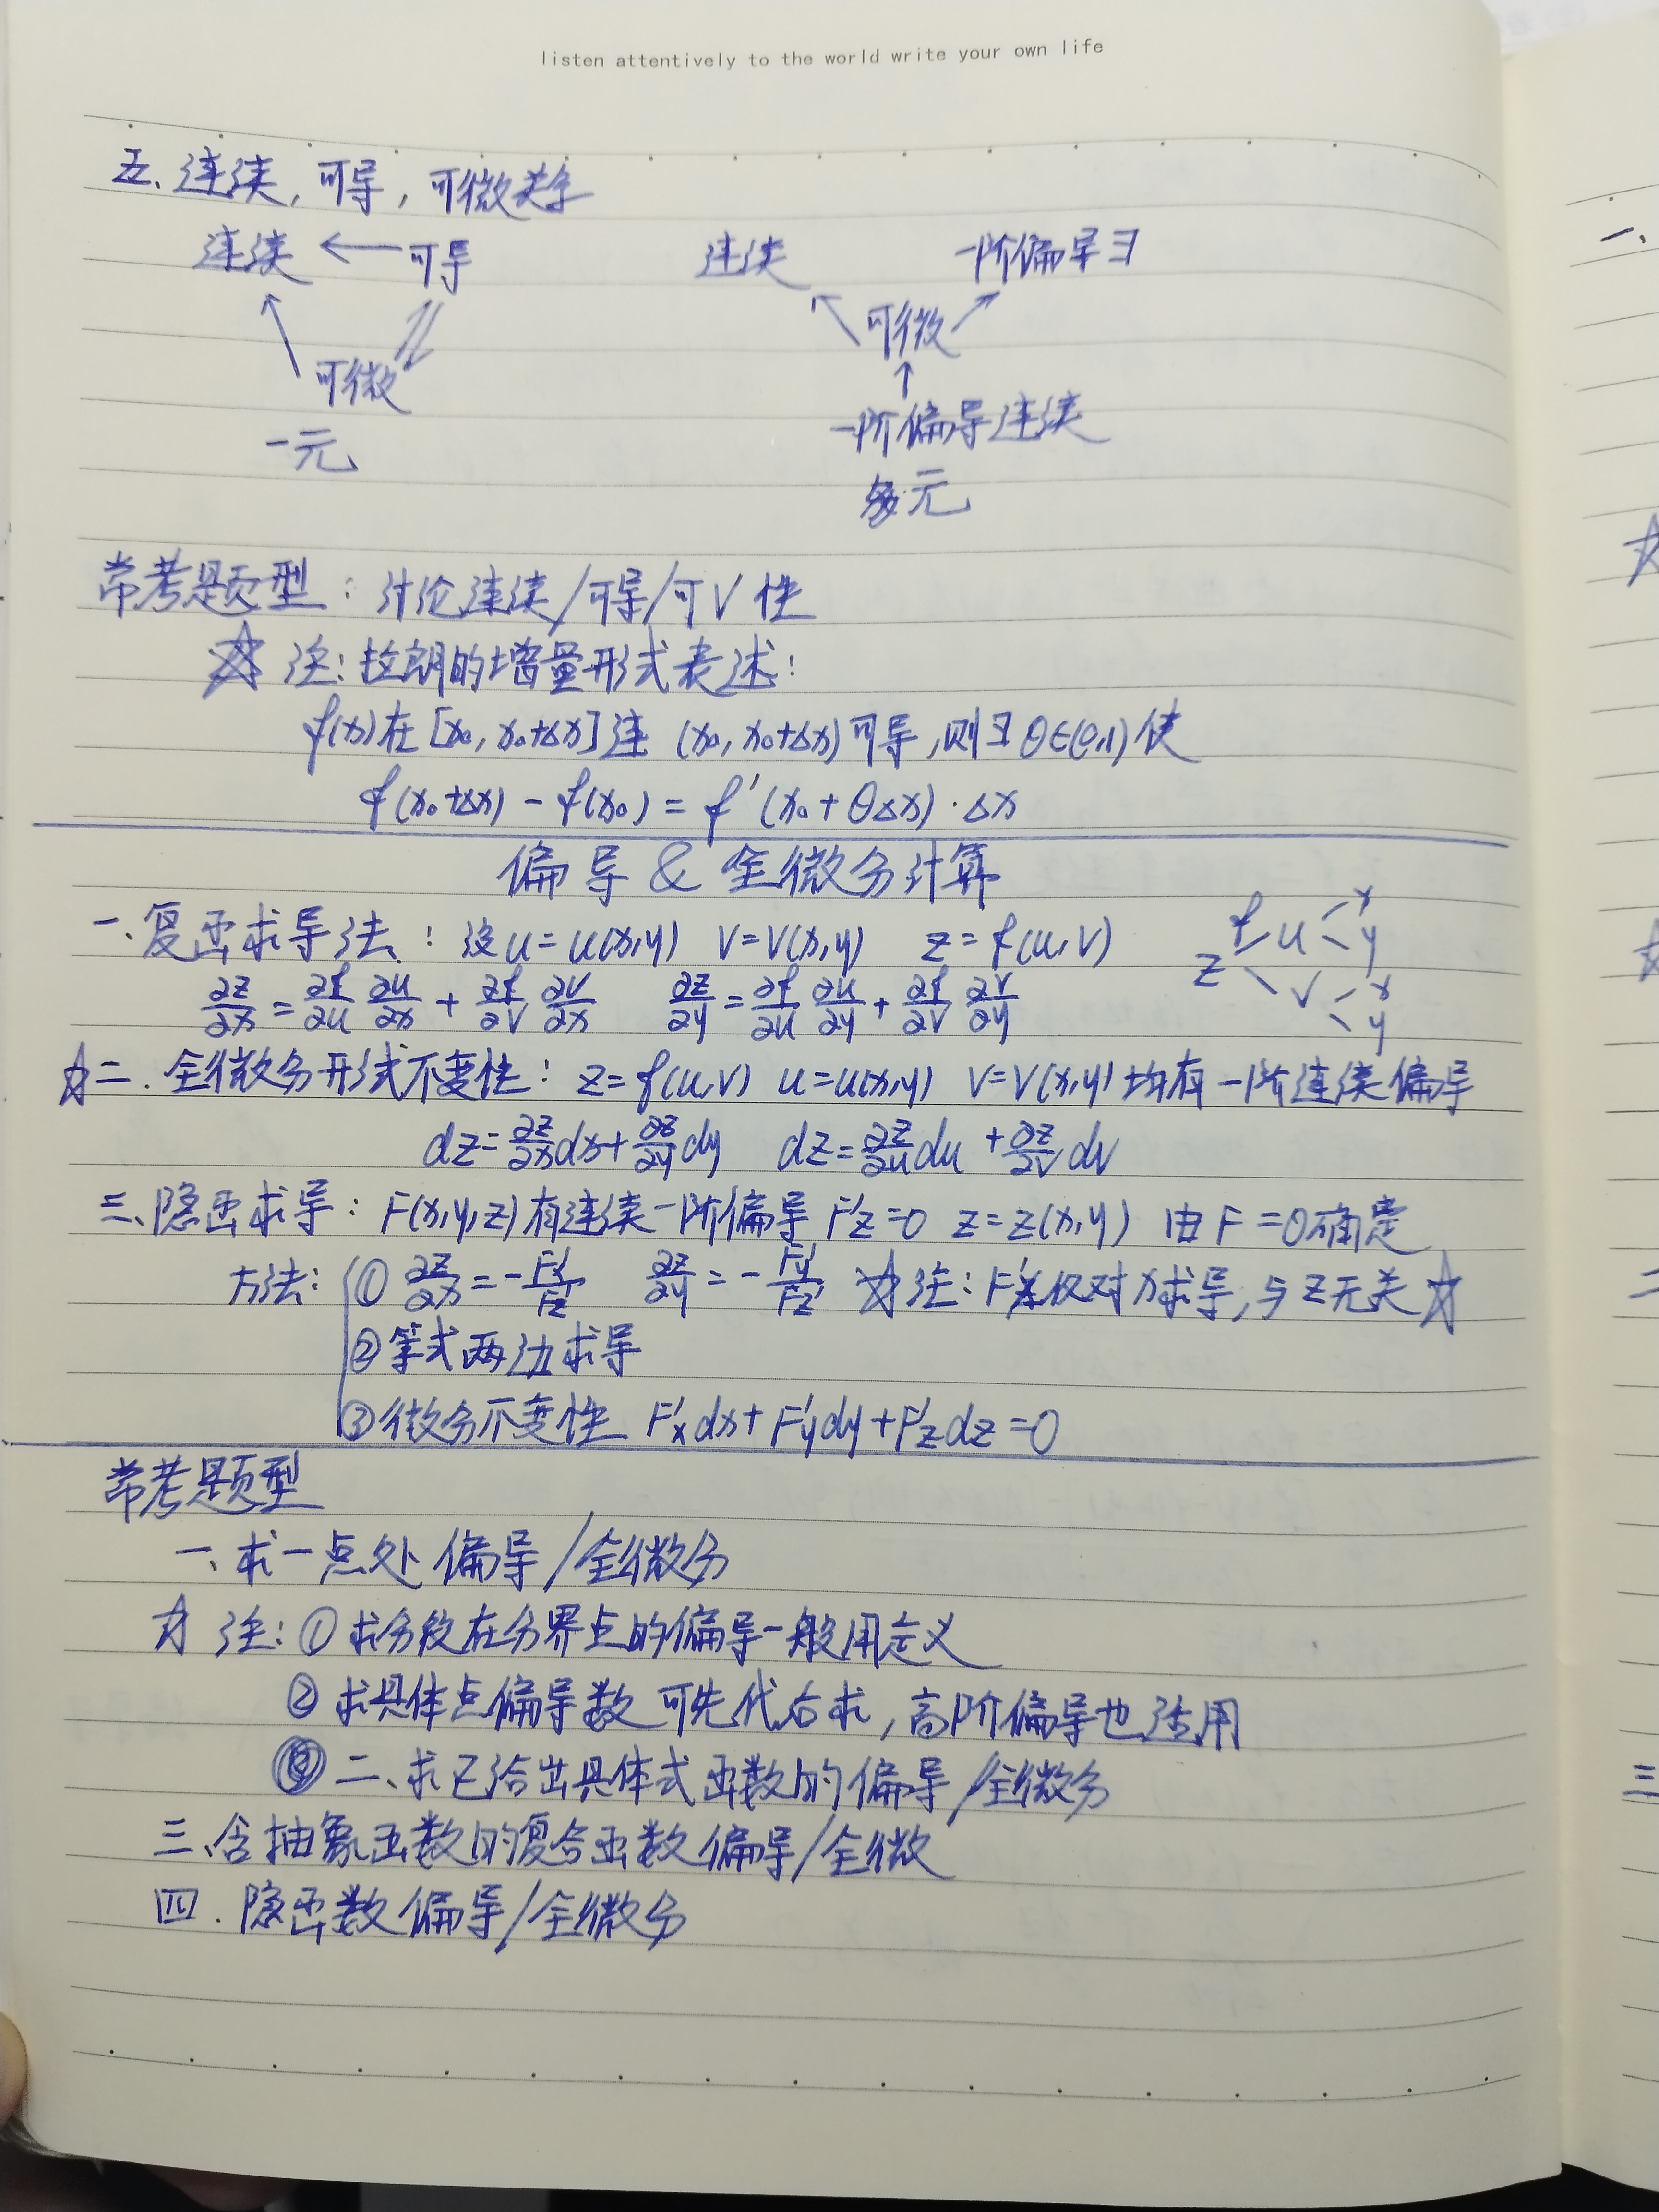 listen attentively to the world write your own life
五、连续,可导,可微关系
连续 ← 可导 连续 一阶偏导∃
可微
可微
一阶偏导连续
一元
多元
常考题型:讨论连续/可导/可V性
☆ 注:拉朗的增量形式表述:
f(x)在[x₀, x₀+Δx]连 (x₀, x₀+Δx)可导,则∃θ∈(0,1)使
f(x₀+Δx) - f(x₀) = f'(x₀+θΔx)·Δx
偏导 & 全微分计算
一、复函求导法:设u=u(x,y) v=v(x,y) z=f(u,v)
z f u x y v x y
∂z/∂x = ∂f/∂u ∂u/∂x + ∂f/∂v ∂v/∂x ∂z/∂y = ∂f/∂u ∂u/∂y + ∂f/∂v ∂v/∂y
☆二.全微分形式不变性:z=f(u,v) u=u(x,y) v=v(x,y)均有一阶连续偏导
dz=∂z/∂x dx+∂z/∂y dy dz=∂z/∂u du+∂z/∂v dv
三、隐函求导:F(x,y,z)有连续一阶偏导 F'z=0 z=z(x,y) 由F=0确定
方法:① ∂z/∂x=-F'x/F'z ∂z/∂y=-F'y/F'z ☆注:F'x仅对x求导,与z无关☆
②等式两边求导
③微分不变性 F'x dx+F'y dy+F'z dz=0
常考题型
一、求一点处偏导/全微分
☆ 注:①求分段在分界点的偏导一般用定义
② 求具体点偏导数可先代后求,高阶偏导也适用
二、求已给出具体式函数的偏导/全微分
三、含抽象函数的复合函数偏导/全微
四.隐函数偏导/全微分
一、
二
三